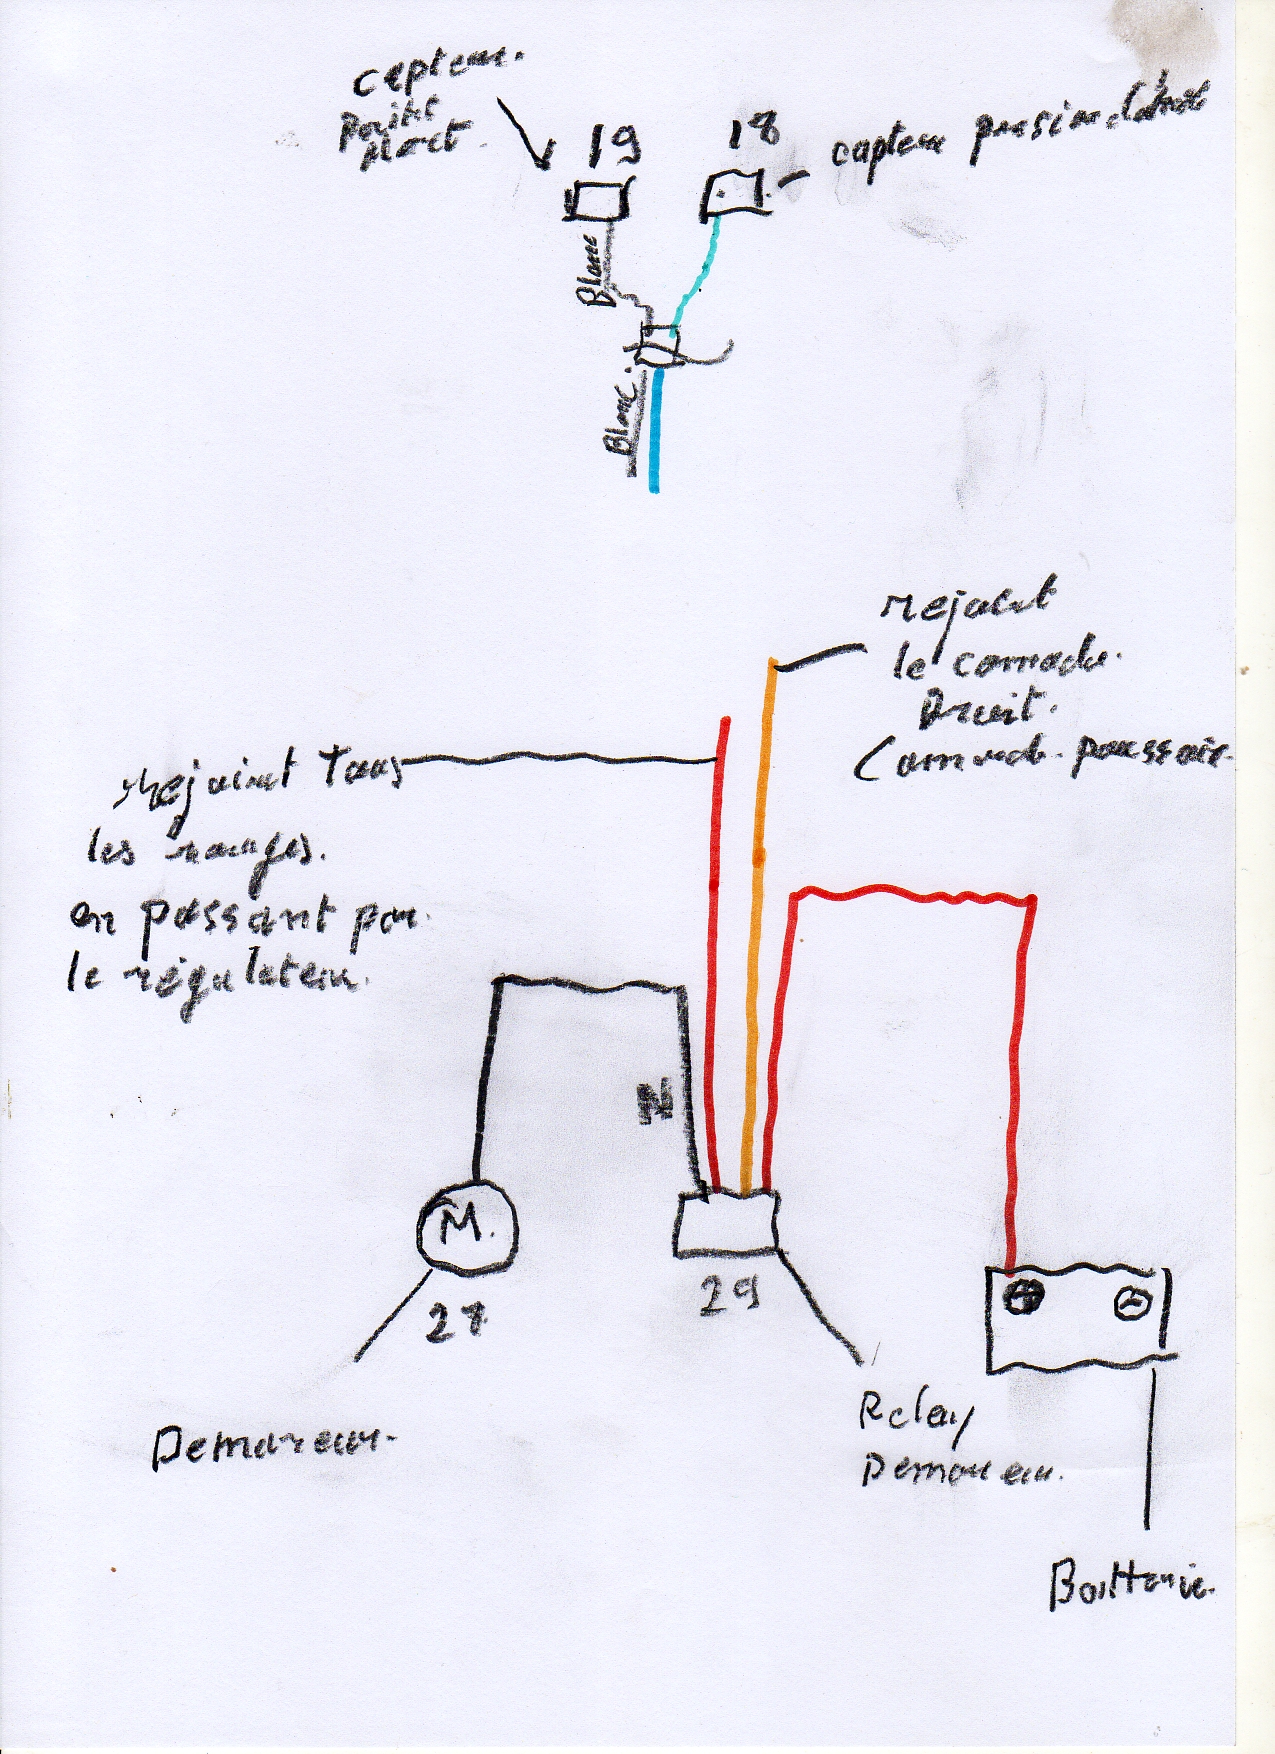 capteur.
point
mort.
19
18
capteur pression d'huile
Blanc
Blanc.
rejoint
le comodo.
Droit.
Comode. poussoir.
rejoint Tous
les rouges.
en passant par.
le régulateur.
N
M.
27
29
+
-
Demareur.
Relay
Demareur.
Batterie.